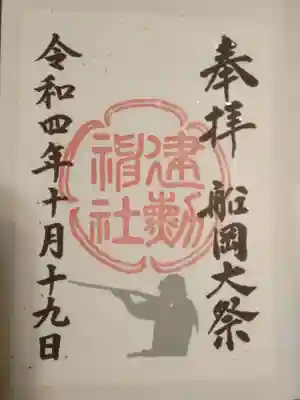 奉拝 船岡大祭
建勲神社
令和四年十月十九日